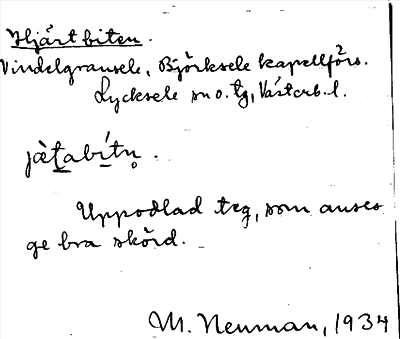 Hjärtbiten.
Vindelgransele, Björksele kapellförs.
Lycksele sn o. tg, Västerb. l.
jàt̲abí̲tn̥.
Uppodlad teg, som anses
ge bra skörd.
M. Neuman, 1934